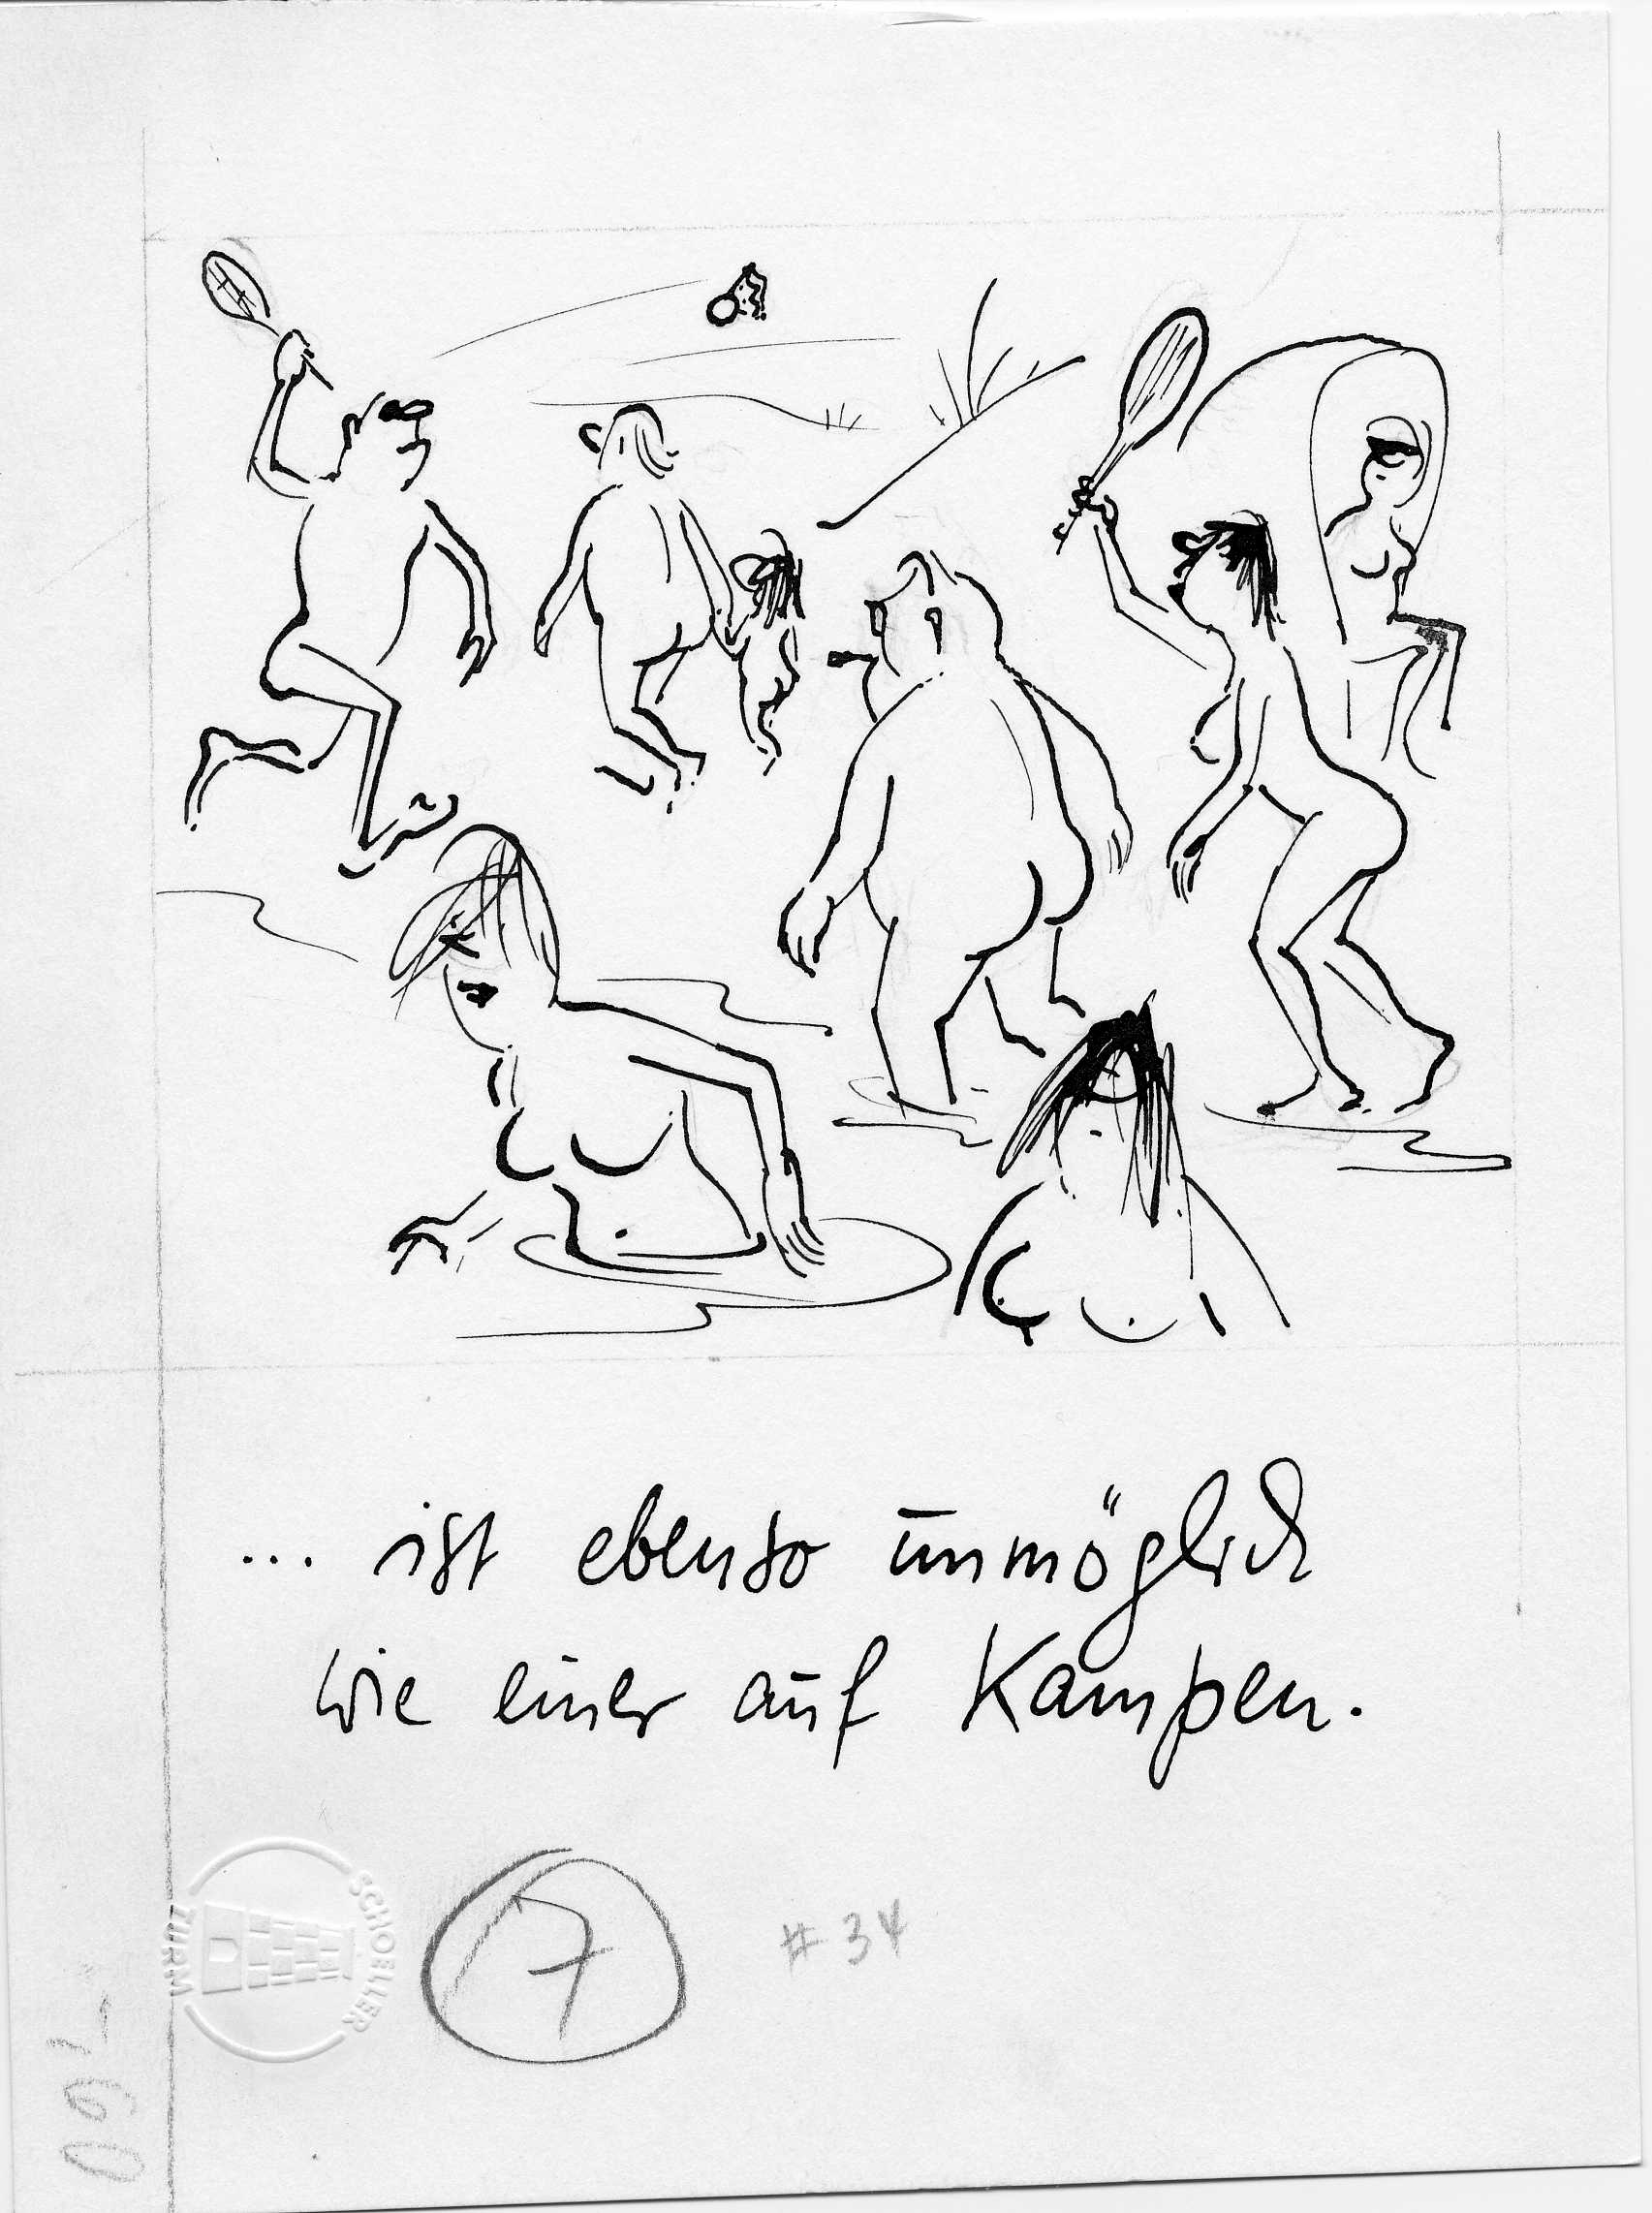 ... ist ebenso unmöglich
wie einer auf Kampen.
SCHOELLER
TURM
7
#34
760